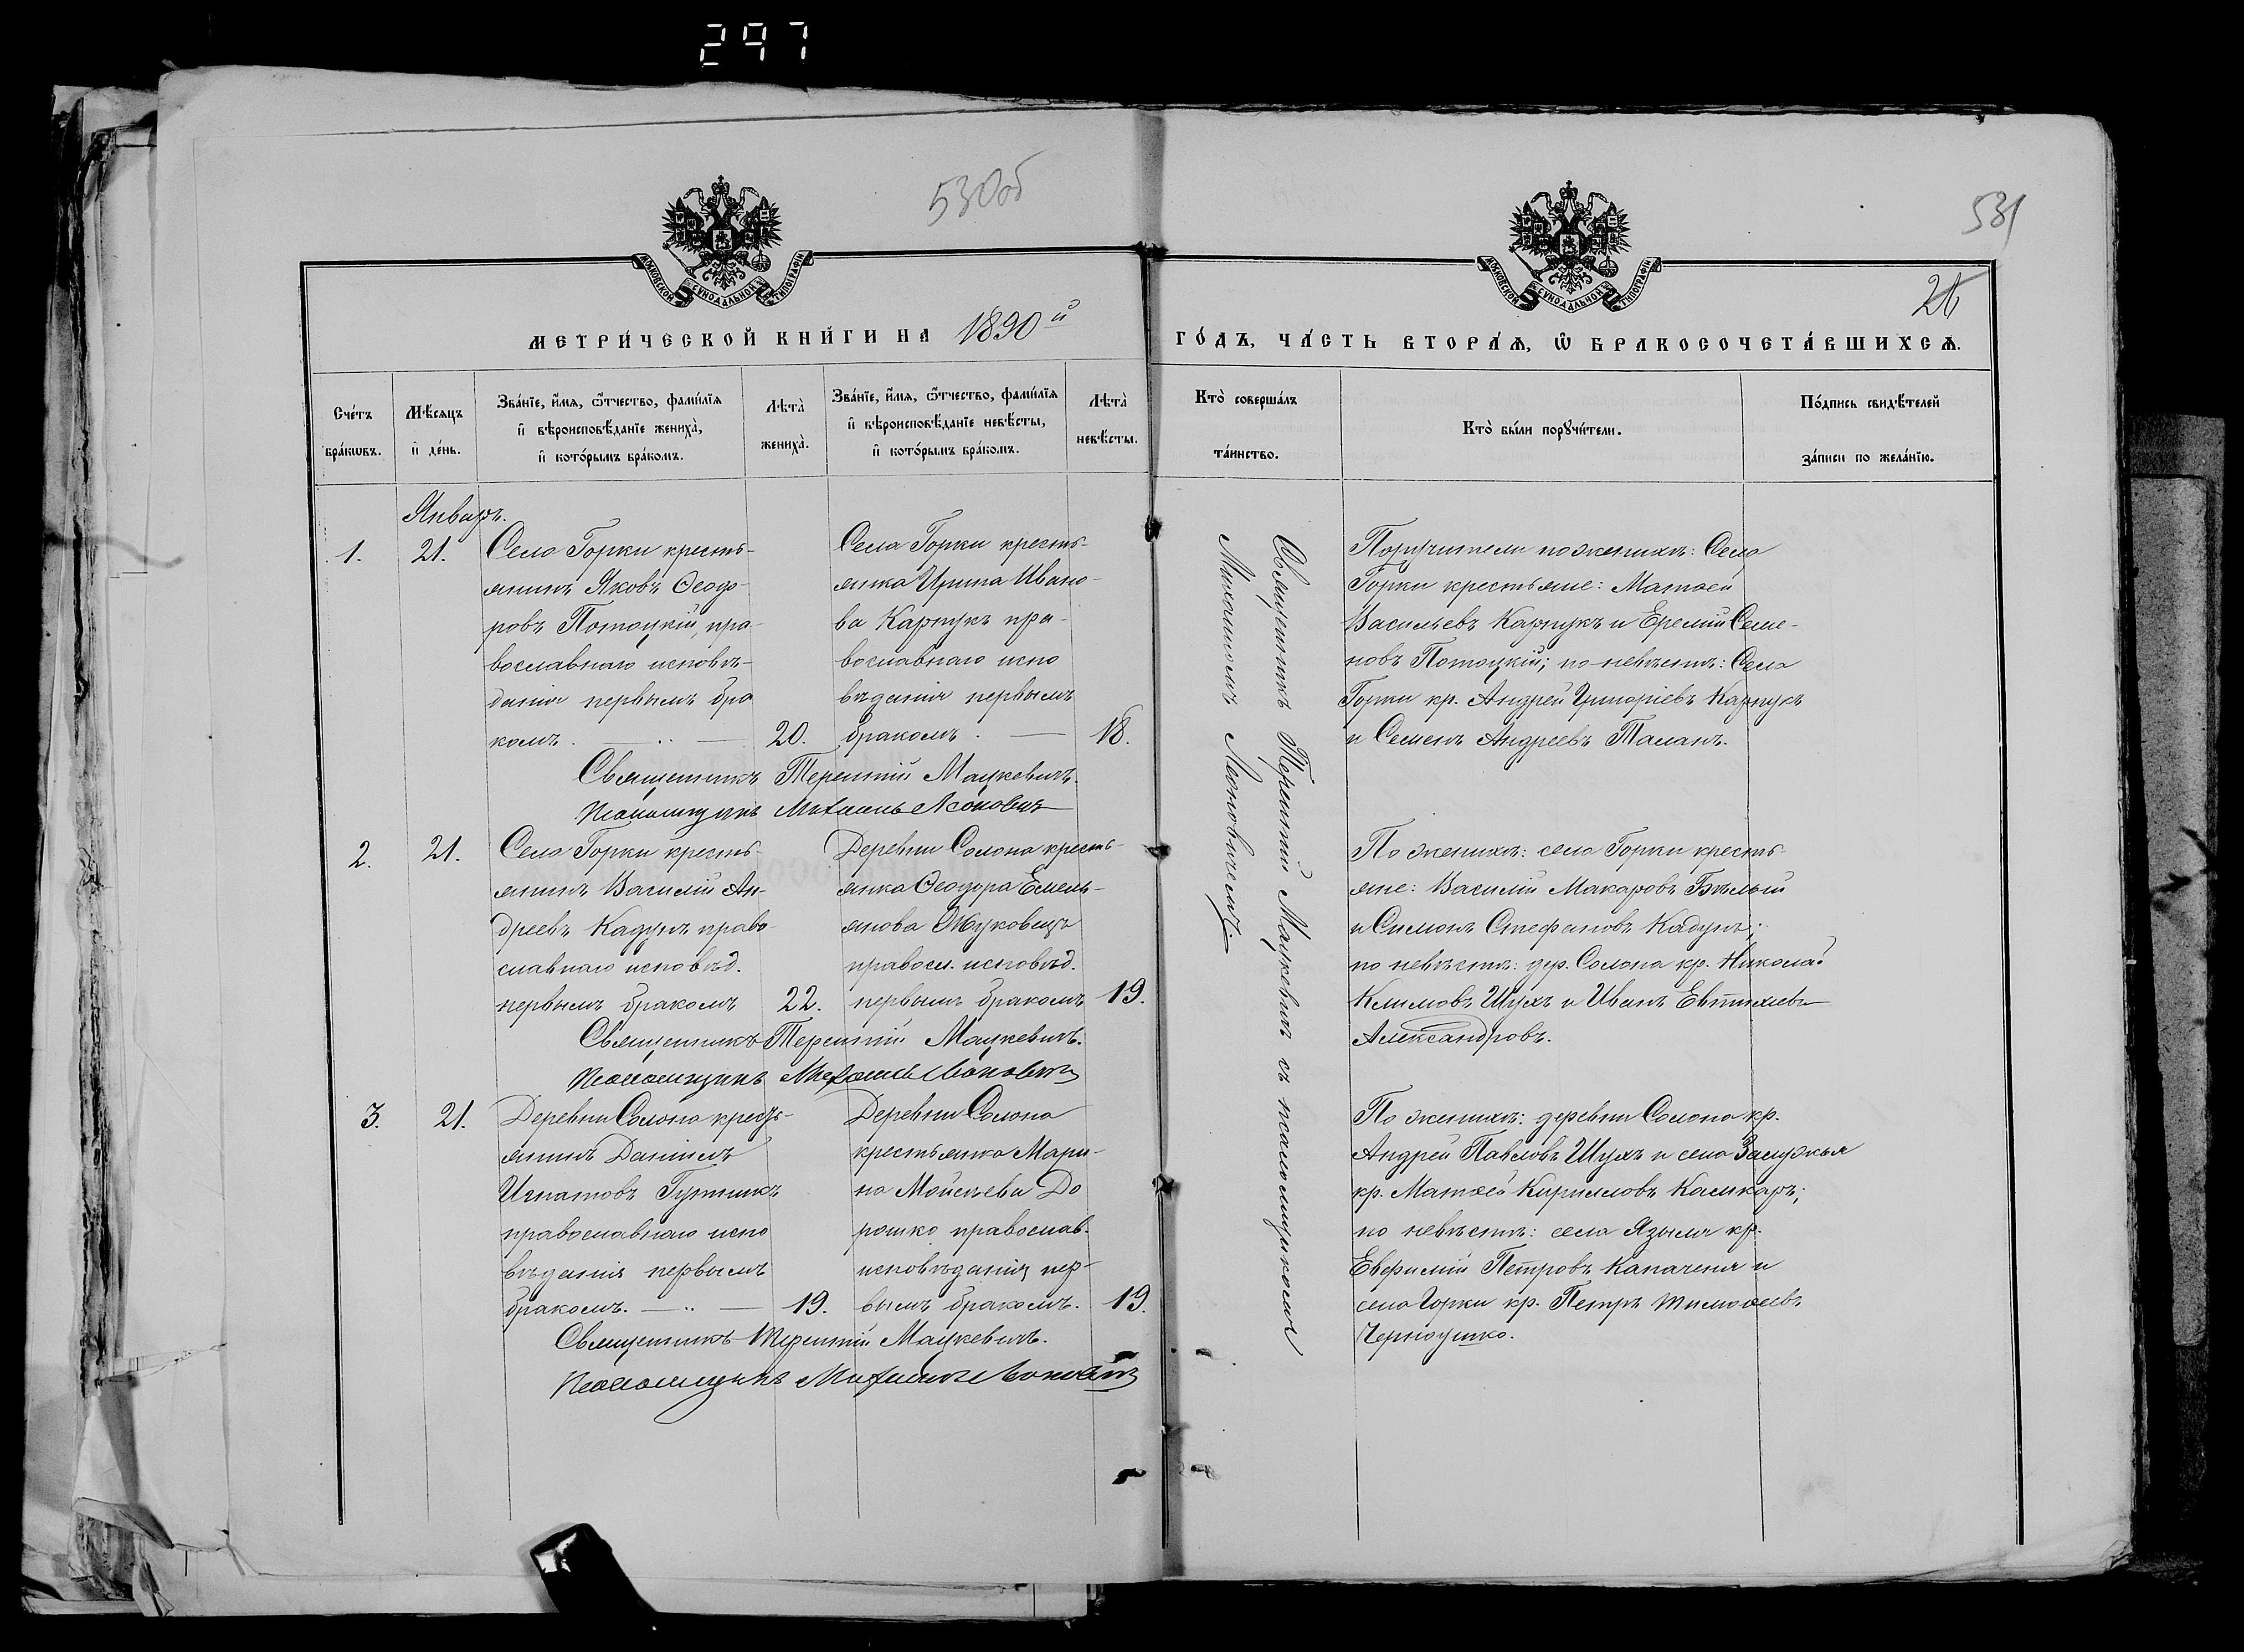 297
530об
531
26
МОСКОВСКОЙ СѴНОДАЛЬНОЙ ТИПОГРАФІИ
МОСКОВСКОЙ СѴНОДАЛЬНОЙ ТИПОГРАФІИ
МЕТРИ́ЧЕСКОЙ КНИ́ГИ НА 1890й
ГО́ДЪ, ЧА́СТЬ ВТОРА́Ѧ, Ѽ БРАКОСОЧЕТА́ВШИХСѦ.
Сче́тъ бра́кѡвъ.
Мѣ́сѧцъ и҆ де́нь.
Зва́нїе, и҆́мѧ, ѻ҆́тчество, фами́лїѧ и҆ вѣроисповѣ́данїе жениха̀, и҆ кото́рымъ бра́комъ.
Лѣта̀ жениха̀.
Зва́нїе, и҆́мѧ, ѻ҆́тчество, фами́лїѧ и҆ вѣроисповѣ́данїе невѣ́сты, и҆ кото́рымъ бра́комъ.
Лѣта̀ невѣ́сты.
Кто̀ соверша́лъ та́инство.
Кто̀ бы́ли порꙋчи́тели.
По́дпись свидѣ́телей за́писи по жела́нїю.
Январь.
1.
21.
Села Горки кресть-
янинъ Яковъ Ѳеодо-
ровъ Потоцкій, пра-
вославнаго исповѣ-
данія первымъ бра
комъ.
20.
Села Горки кресть-
янка Ирина Ивано-
ва Карпукъ пра-
вославнаго испо
вѣданія первымъ
бракомъ.
18.
Поручители по женихѣ: Села
Горки крестьяне: Матѳей
Васильевъ Карпукъ и Еремій Семе-
новъ Потоцкій; по невѣстѣ: Села
Горки кр. Андрей Григоріевъ Карпукъ
и Семенъ Андреевъ Таланъ.
Священникъ Терентій Мацкевичъ.
Псаломщикъ Михаилъ Леоновичъ
2.
21.
Села Горки кресть-
янинъ Василій Ан-
дреевъ Кадунъ право-
славнаго исповѣд.
первымъ бракомъ
22.
Деревни Солона кресть-
янка Ѳеодора Емель-
янова Жуковецъ
правосл. исповѣд.
первымъ бракомъ
19.
По женихѣ: села Горки кресть-
яне: Василій Макаровъ Бѣлый
и Симонъ Стефановъ Кадунъ;
по невѣстѣ: дер. Солона кр. Николай
Климовъ Шухъ и Иванъ Евтихіевъ
Александровъ.
Священникъ Терентій Мацкевичъ.
Псаломщикъ Михаилъ Леоновичъ
3.
21.
Деревни Солона кресть-
янинъ Даніилъ
Игнатовъ Гутникъ
православнаго испо
вѣданія первымъ
бракомъ.
19.
Деревни Солона
крестьянка Мари-
на Моисеева До
рошко православ.
исповѣданія пер-
вымъ бракомъ.
19.
По женихѣ: деревни Солона кр.
Андрей Павловъ Шухъ и села Залужья
кр. Матѳей Кирилловъ Камкаръ;
по невѣстѣ: села Языля кр.
Евфимій Петровъ Капаченя и
села Горки кр. Петръ Тимоѳеевъ
Черноушко.
Священникъ Терентій Мацкевичъ.
Псаломщикъ Михаилъ Леоновичъ
Священникъ Терентій Мацкевичъ съ псаломщикомъ
Михаиломъ Леоновичемъ.